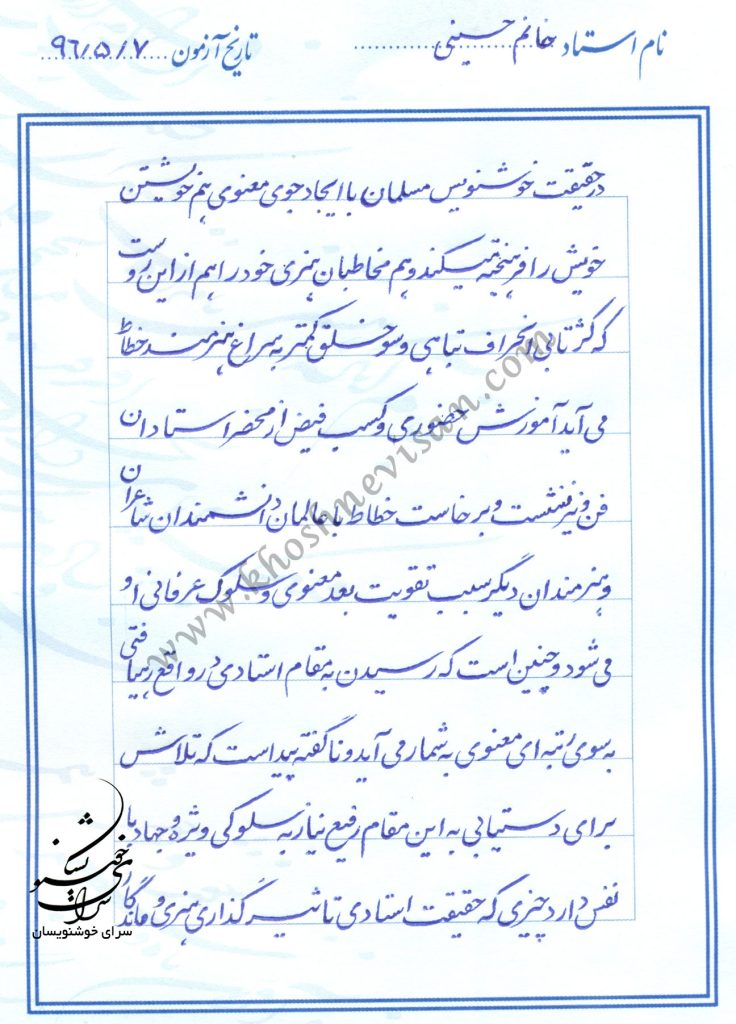 نام استاد خانم حسینی تاریخ آزمون ۹۶/۵/۷
در حقیقت خوشنویس مسلمان با ایجاد جوی معنوی هم خویشتن
خویش را فرهیخته میکند و هم مخاطبان هنری خود را هم از این روست
که کژتابی انحراف تباهی و سو خلق کمتر به سراغ هنرمند خطاط
می آید آموزش حضوری و کسب فیض از محضر استادان
فن و نیز نشست و برخاست خطاط با عالمان دانشمندان شاعران
و هنرمندان دیگر سبب تقویت بعد معنوی و سلوک عرفانی او
می شود و چنین است که رسیدن به مقام استادی در واقع رهیافتی
به سوی رتبه ای معنوی به شمار می آید و ناگفته پیداست که تلاش
برای دستیابی به این مقام رفیع نیاز به سلوکی ویژه و جهاد با
نفس دارد چیزی که حقیقت استادی تاثیر گذاری هنری و ماندگاری
www.khoshnevisan.com
سرای خوشنویسان